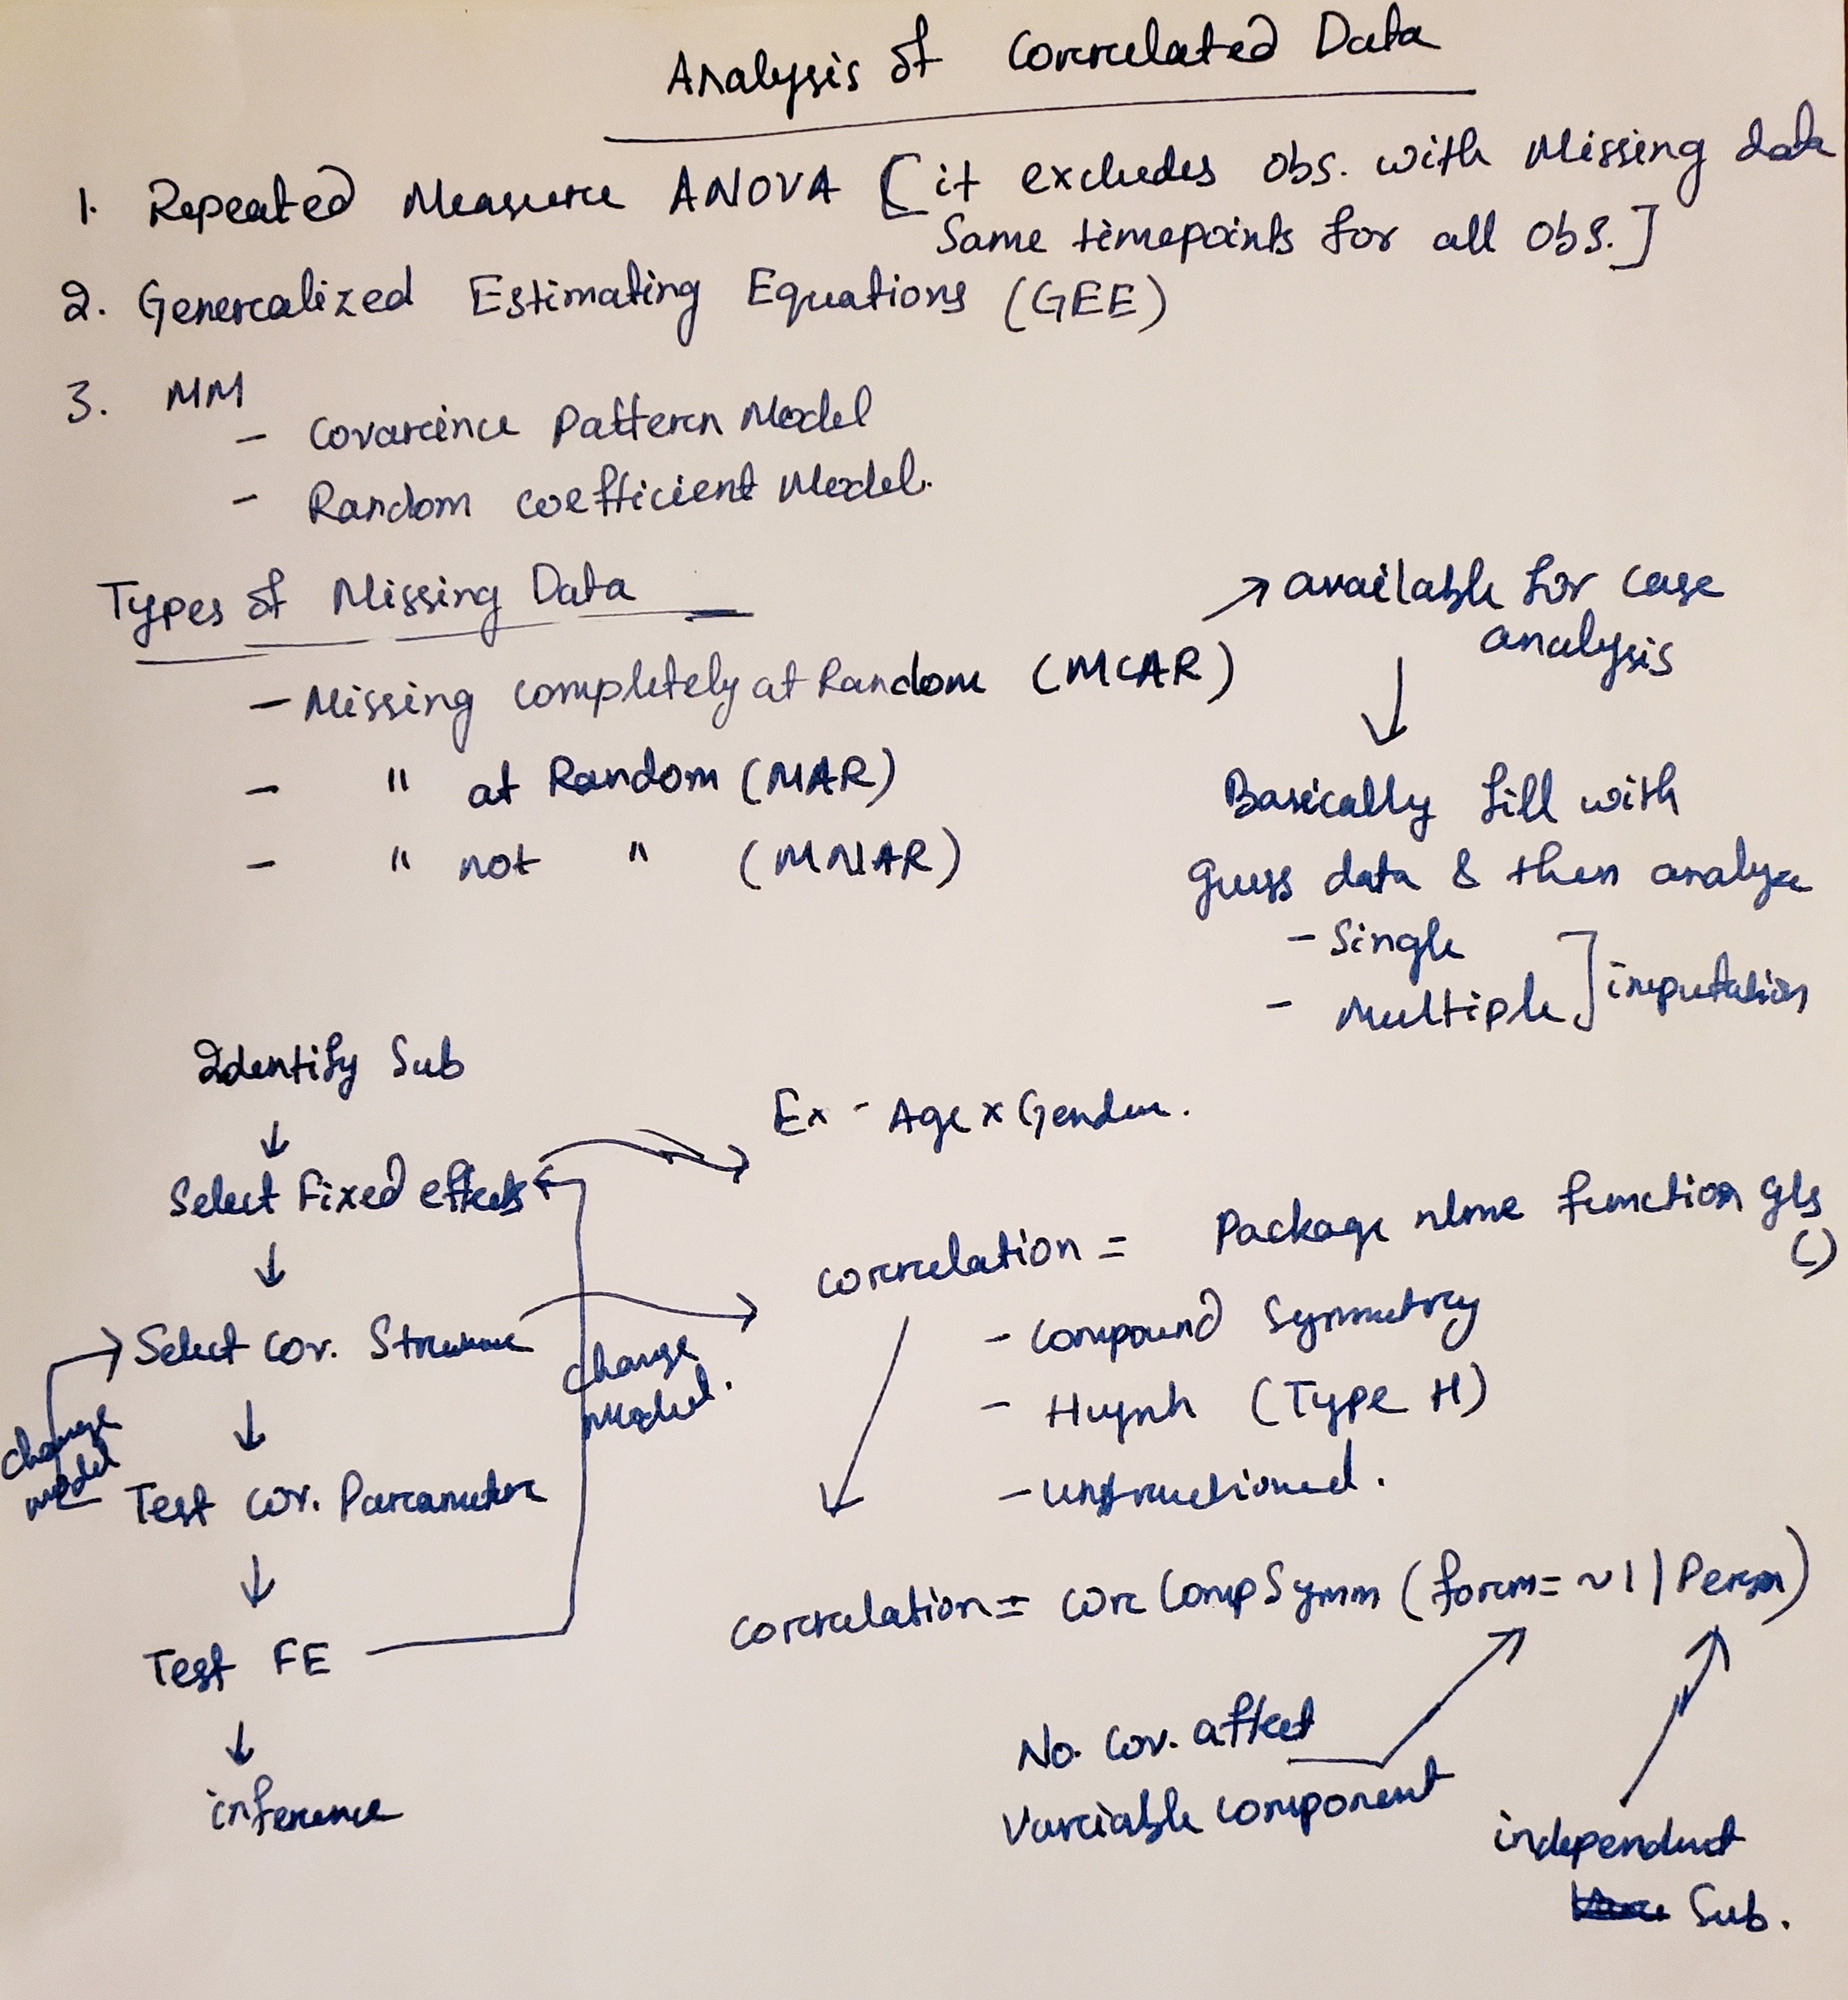 Analysis of Correlated Data
1. Repeated Measure ANOVA [it excludes obs. with Missing data
Same timepoints for all obs.]
2. Generalized Estimating Equations (GEE)
3. MM
- Covarience Pattern Model
- Random coefficient Model.
Types of Missing Data
- Missing completely at Random (MCAR)
→ available for case
analysis
↓
- " at Random (MAR)
- " not " (MNAR)
Basically fill with
guess data & then analyze
- Single
- Multiple ] imputation
Identify Sub
↓
Select Fixed effects
Ex - Age x Gender.
↓
Select cov. Structure
change
model
↓
Test cov. Parameter
↓
Test FE
change
Model.
↓
inference
correlation = Package nlme function gls
()
- compound Symmetry
- Huynh (Type H)
- unstructioned.
correlation = corCompSymm (form= ~1 | Person)
No. Cov. affect
Variable component
independent
Sub.